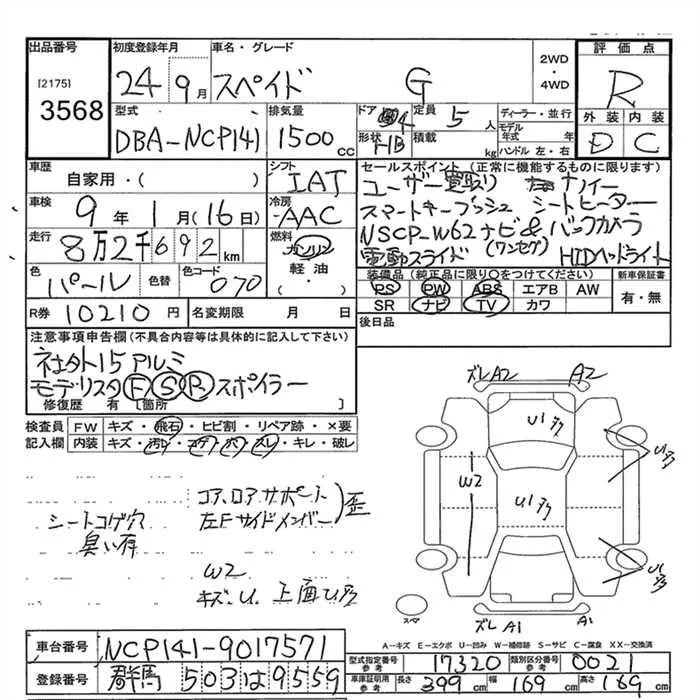 出品番号 初度登録年月 車名・グレード 2WD・4WD 評価点
[2175] 3568 24 9月 スペイド G R
型式 排気量 ドア 定員 ディーラー・並行 外装 内装
DBA-NCP141 1500cc 4 5人 モデル年式 年 D C
形状 HB 積載 kg ハンドル 左・右
車歴 シフト セールスポイント(正常に機能するものに限ります)
自家用・( ) IAT ユーザー買取り
車検 9年1月(16日) 冷房 AAC スマートキープッシュ シートヒーター
走行 8万2千692km 燃料 ガソリン NSCP-W62ナビ&バックカメラ
軽油・( ) 電動スライド(ワンセグ) HIDヘッドライト
色 パール 色替 色コード 070
装備品(純正品に限り○をつけてください) 新車保証書
PS PW ABS エアB AW 有・無
SR ナビ TV カワ
R券 10210円 名変期限 月 日 後日品
注意事項申告欄(不具合内容等は具体的に記入して下さい)
社外15アルミ
モデリスタ F S R スポイラー
修復歴 有 [箇所 ]
検査員記入欄 FW キズ・飛石・ヒビ割・リペア跡・×要
内装 キズ・汚レ・コゲ・穴・スレ・キレ・破レ
シートコゲ穴
臭い有
コア、ロアサポート
左Fサイドメンバー
歪
W2
キズ・U. 上面U1多
ズレA2 A2
U1多
W2 U1多 U1多
U1多
スペア ズレA1 A1
A-キズ E-エクボ U-凹み W-補修跡 S-サビ C-腐食 XX-交換済
車台番号 NCP141-9017571
型式指定番号参考 17320 類別区分番号参考 0021
登録番号 群馬 503 は 9559
車庫証明用参考 長さ 399cm 幅 169cm 高さ 169cm